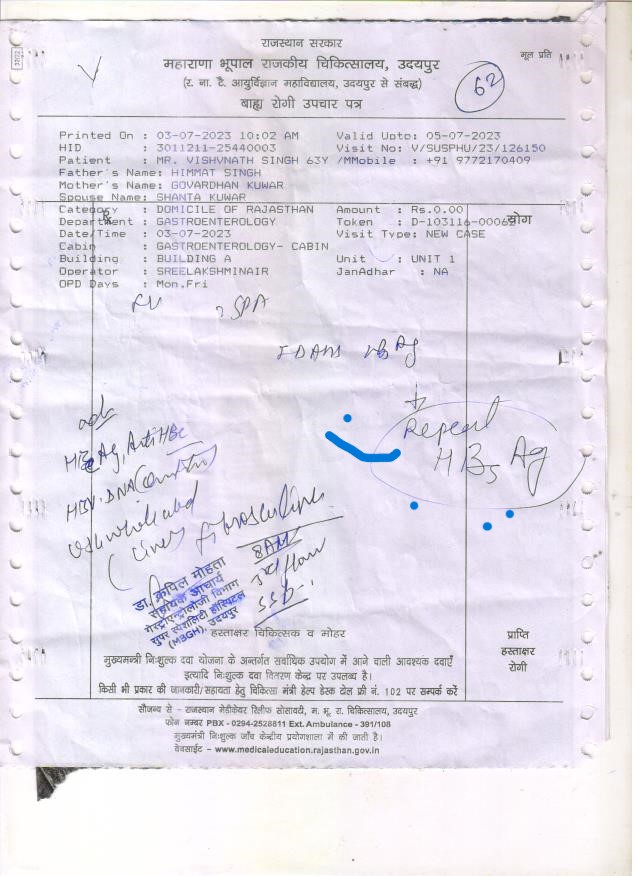 राजस्थान सरकार
महाराणा भूपाल राजकीय चिकित्सालय, उदयपुर
मूल प्रति
(र. ना. टै. आयुर्विज्ञान महाविद्यालय, उदयपुर से संबद्ध)
62
बाह्य रोगी उपचार पत्र
Printed On : 03-07-2023 10:02 AM Valid Upto: 05-07-2023
HID : 3011211-25440003 Visit No: V/SUSPHU/23/126150
Patient : MR. VISHVNATH SINGH 63Y /MMobile : +91 9772170409
Father's Name: HIMMAT SINGH
Mother's Name: GOVARDHAN KUWAR
Spouse Name: SHANTA KUWAR
Category : DOMICILE OF RAJASTHAN Amount : Rs.0.00
Department : GASTROENTEROLOGY Token : D-103116-0006 रोग
Date/Time : 03-07-2023 Visit Type: NEW CASE
Cabin : GASTROENTEROLOGY- CABIN
Building : BUILDING A Unit : UNIT 1
Operator : SREELAKSHMINAIR JanAdhar : NA
OPD Days : Mon,Fri
Repeat
HBs Ag
adv
HBe Ag, Anti HBc
HBV DNA
8AM
3rd floor
डा. कपिल मोहता
सहायक आचार्य
गेस्ट्रोएन्ट्रोलॉजी विभाग
सुपर स्पेशलिटी हॉस्पिटल
(MBGH), उदयपुर
हस्ताक्षर चिकित्सक व मोहर
प्राप्ति
हस्ताक्षर
रोगी
मुख्यमन्त्री निःशुल्क दवा योजना के अन्तर्गत सर्वाधिक उपयोग में आने वाली आवश्यक दवाएँ
इत्यादि निःशुल्क दवा वितरण केन्द्र पर उपलब्ध है।
किसी भी प्रकार की जानकारी/सहायता हेतु चिकित्सा मंत्री हेल्प डेस्क टोल फ्री नं. 102 पर सम्पर्क करें
सौजन्य से - राजस्थान मेडीकेयर रिलीफ सोसायटी, म. भू. रा. चिकित्सालय, उदयपुर
फोन नम्बर PBX - 0294-2528811 Ext. Ambulance - 391/108
मुख्यमंत्री निःशुल्क जाँच केन्द्रीय प्रयोगशाला में की जाती है।
वेबसाईट - www.medicaleducation.rajasthan.gov.in